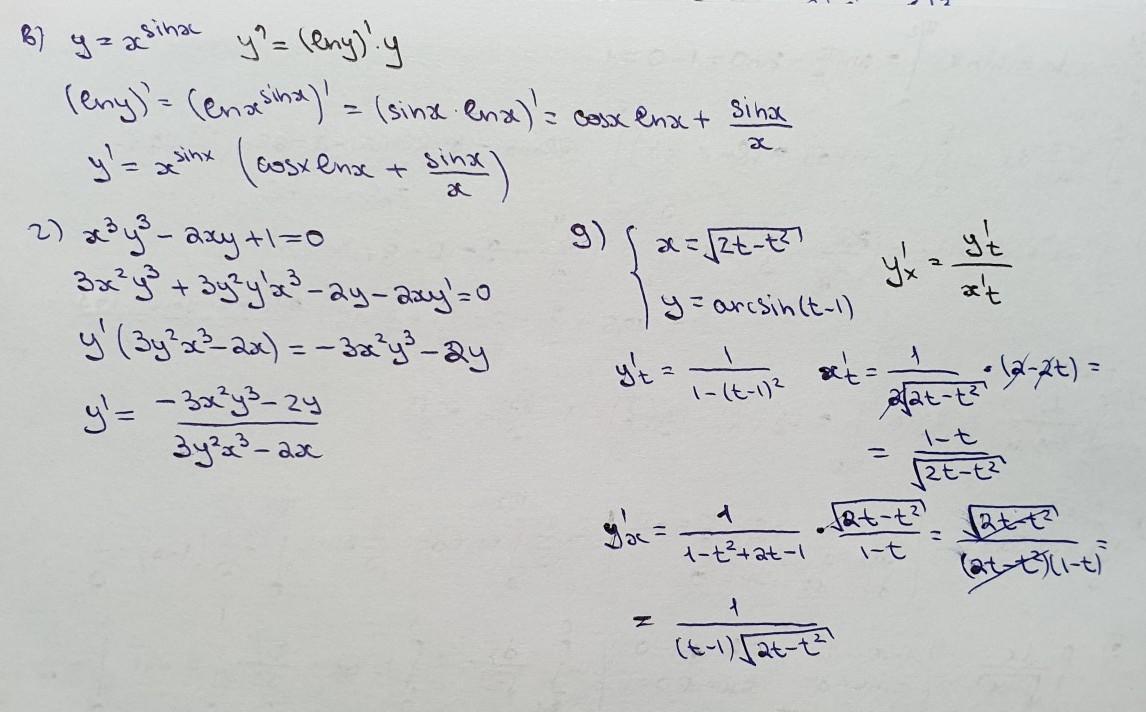 в) y = x^sinx  y' = (lny)'·y
(lny)' = (lnx^sinx)' = (sinx·lnx)' = cosx lnx + sinx/x
y' = x^sinx (cosx lnx + sinx/x)
г) x³y³ - 2xy + 1 = 0
3x²y³ + 3y²y'x³ - 2y - 2xy' = 0
y'(3y²x³ - 2x) = -3x²y³ - 2y
y' = (-3x²y³ - 2y)/(3y²x³ - 2x)
g) { x = √(2t-t²)  y'x = y't/x't
y = arcsin(t-1)
y't = 1/(1-(t-1)²)  x't = 1/(2√(2t-t²)) · (2-2t) =
= (1-t)/√(2t-t²)
y'x = 1/(1-t²+2t-1) · √(2t-t²)/(1-t) = √(2t-t²)/((2t-t²)(1-t)) =
= 1/((t-1)√(2t-t²))